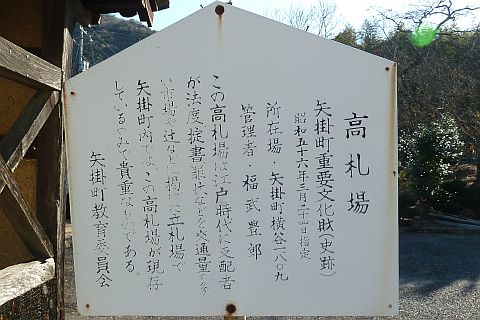 高札場
矢掛町重要文化財(史跡)
昭和五十六年三月二十四日指定
所在場 矢掛町横谷一八〇九
管理者 福武豊郎
この高札場は江戸時代に支配者
が法度掟書罪状などを交通量の多
い市場や辻などに掲げた立札場で
矢掛町内では、この高札場が現存
しているのみで貴重なものである。
矢掛町教育委員会